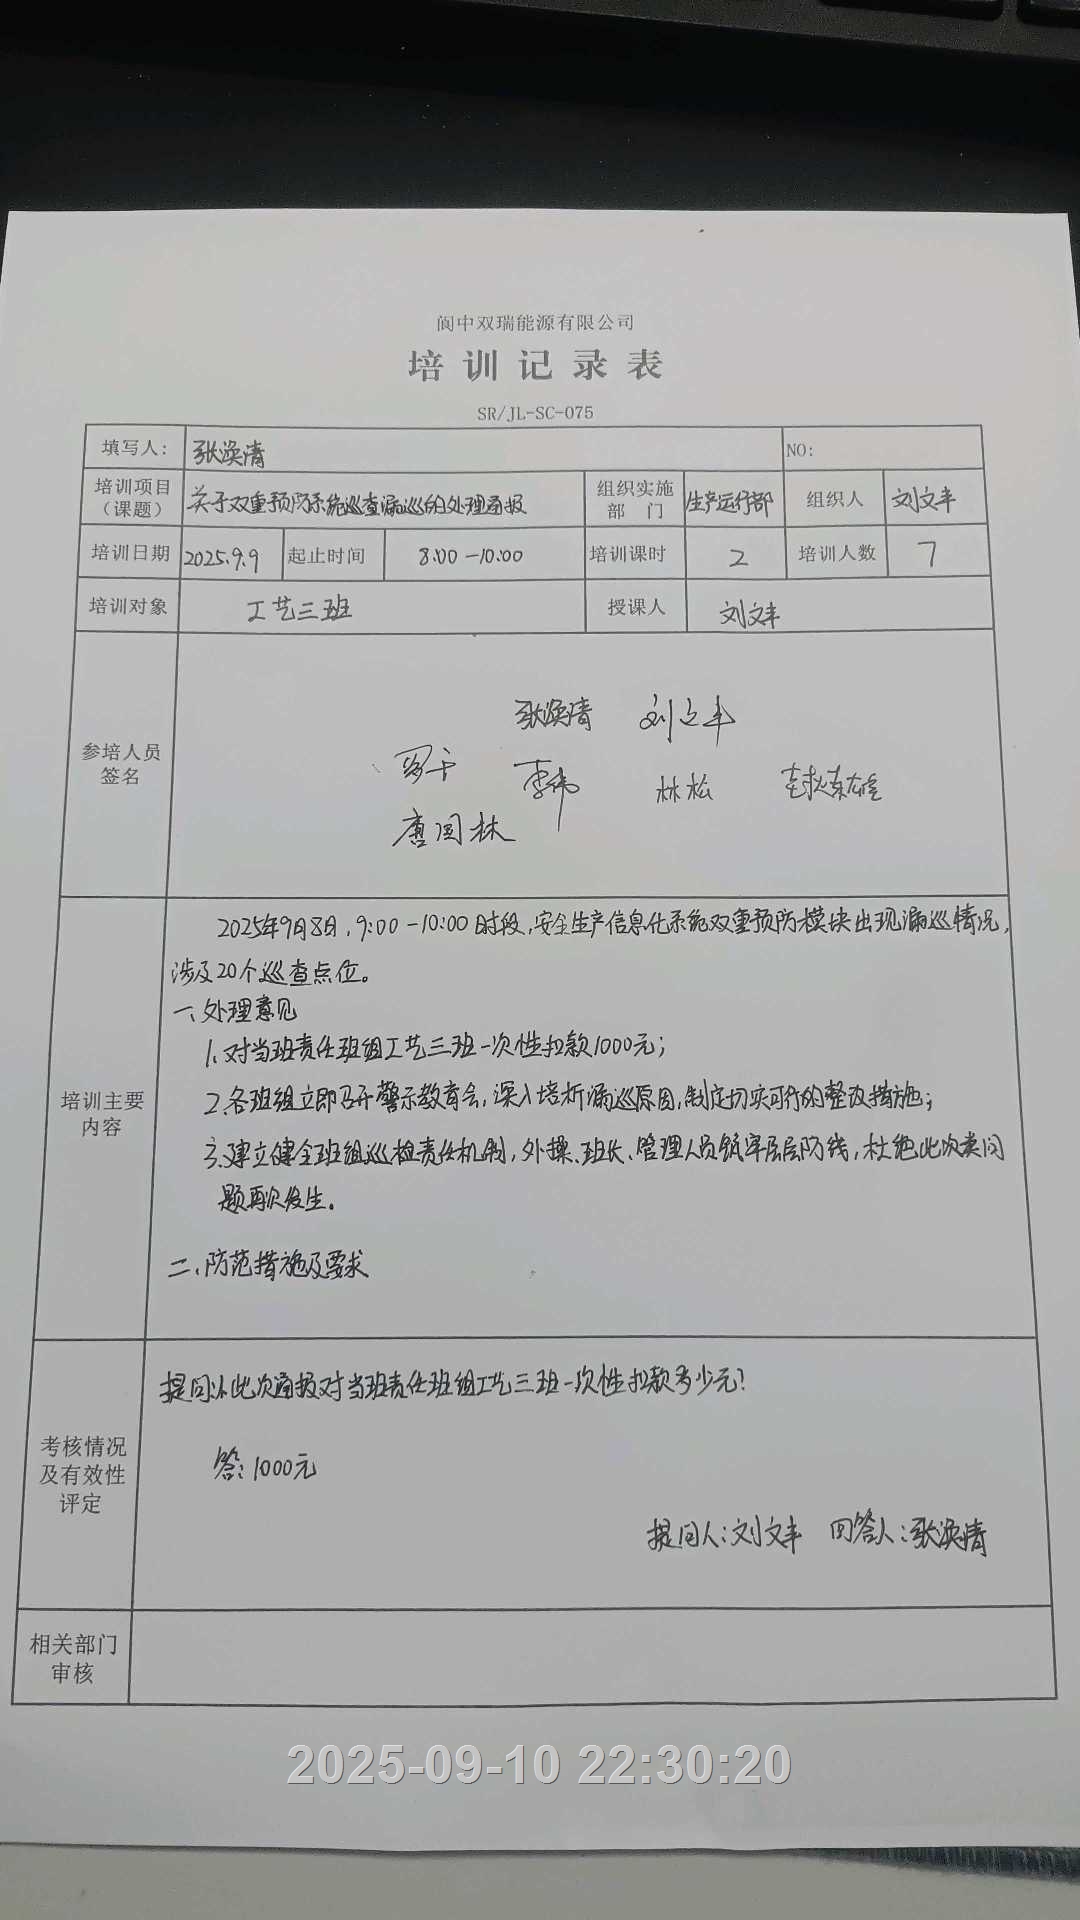 阆中双瑞能源有限公司
培训记录表
SR/JL-SC-075
填写人: 张涣清 NO:
培训项目（课题） 关于双重预防系统巡查漏巡的处理通报 组织实施部门 生产运行部 组织人 刘文丰
培训日期 2025.9.9 起止时间 8:00-10:00 培训课时 2 培训人数 7
培训对象 工艺三班 授课人 刘文丰
参培人员签名
张涣清 刘文丰
罗千 李伟 林松
唐国林
培训主要内容
2025年9月8日,9:00-10:00时段,安全生产信息化系统双重预防模块出现漏巡情况,
涉及20个巡查点位。
一、处理意见
1.对当班责任班组工艺三班一次性扣款1000元;
2.各班组立即召开警示教育会,深入培析漏巡原因,制定切实可行的整改措施;
3.建立健全班组巡检责任机制,外操、班长、管理人员筑牢层层防线,杜绝此次类问
题再次发生。
二、防范措施及要求
考核情况及有效性评定
提问:此次通报对当班责任班组工艺三班一次性扣款多少元?
答:1000元
提问人:刘文丰 回答人:张涣清
相关部门审核
2025-09-10 22:30:20